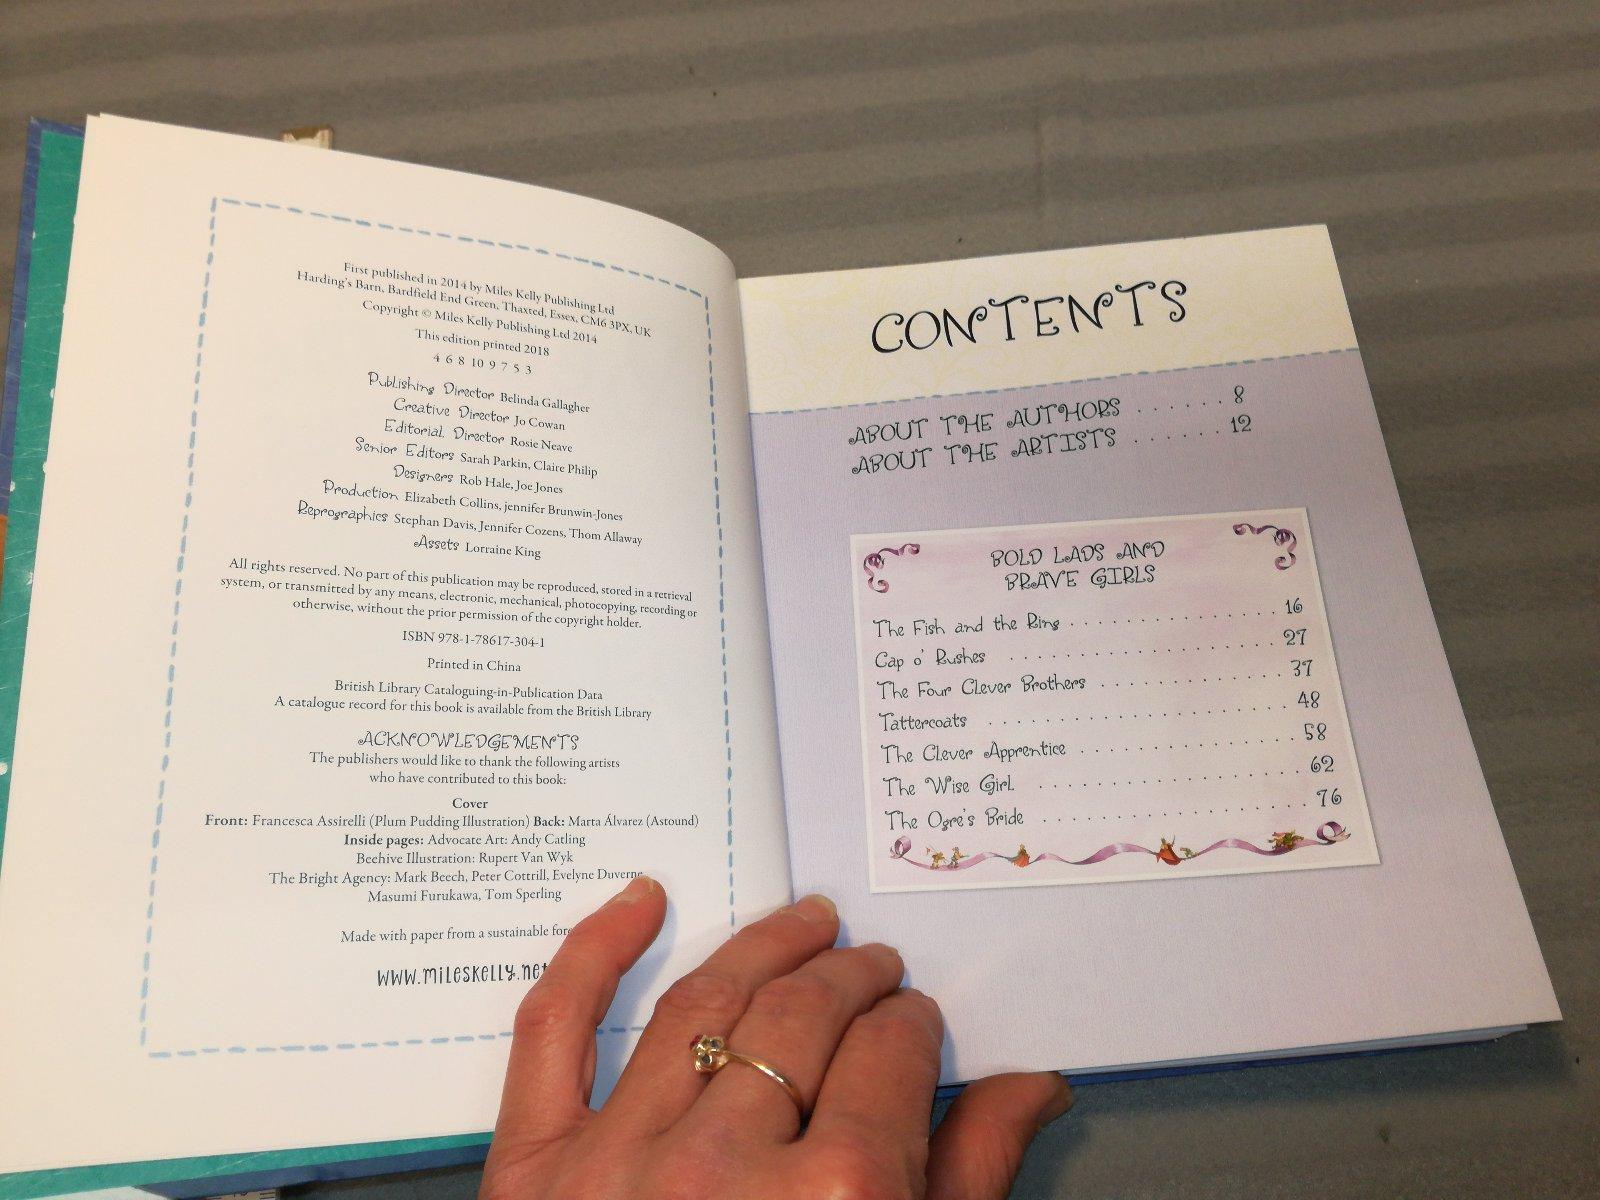 First published in 2014 by Miles Kelly Publishing Ltd
Harding's Barn, Bardfield End Green, Thaxted, Essex, CM6 3PX, UK
Copyright © Miles Kelly Publishing Ltd 2014
This edition printed 2018
4 6 8 10 9 7 5 3
Publishing Director Belinda Gallagher
Creative Director Jo Cowan
Editorial Director Rosie Neave
Senior Editors Sarah Parkin, Claire Philip
Designers Rob Hale, Joe Jones
Production Elizabeth Collins, jennifer Brunwin-Jones
Reprographics Stephan Davis, Jennifer Cozens, Thom Allaway
Assets Lorraine King
All rights reserved. No part of this publication may be reproduced, stored in a retrieval
system, or transmitted by any means, electronic, mechanical, photocopying, recording or
otherwise, without the prior permission of the copyright holder.
ISBN 978-1-78617-304-1
Printed in China
British Library Cataloguing-in-Publication Data
A catalogue record for this book is available from the British Library
ACKNOWLEDGEMENTS
The publishers would like to thank the following artists
who have contributed to this book:
Cover
Front: Francesca Assirelli (Plum Pudding Illustration) Back: Marta Álvarez (Astound)
Inside pages: Advocate Art: Andy Catling
Beehive Illustration: Rupert Van Wyk
The Bright Agency: Mark Beech, Peter Cottrill, Evelyne Duverne
Masumi Furukawa, Tom Sperling
Made with paper from a sustainable
www.mileskelly.net
CONTENTS
ABOUT THE AUTHORS . . . . . . 8
ABOUT THE ARTISTS . . . . . . 12
BOLD LADS AND
BRAVE GIRLS
The Fish and the Ring . . . . . . . . . . . . . . . . 16
Cap o' Rushes . . . . . . . . . . . . . . . . . . . . 27
The Four Clever Brothers . . . . . . . . . . . . . . 37
Tattercoats . . . . . . . . . . . . . . . . . . . . . . 48
The Clever Apprentice . . . . . . . . . . . . . . . . 58
The Wise Girl . . . . . . . . . . . . . . . . . . . . 62
The Ogre's Bride . . . . . . . . . . . . . . . . . . . 76